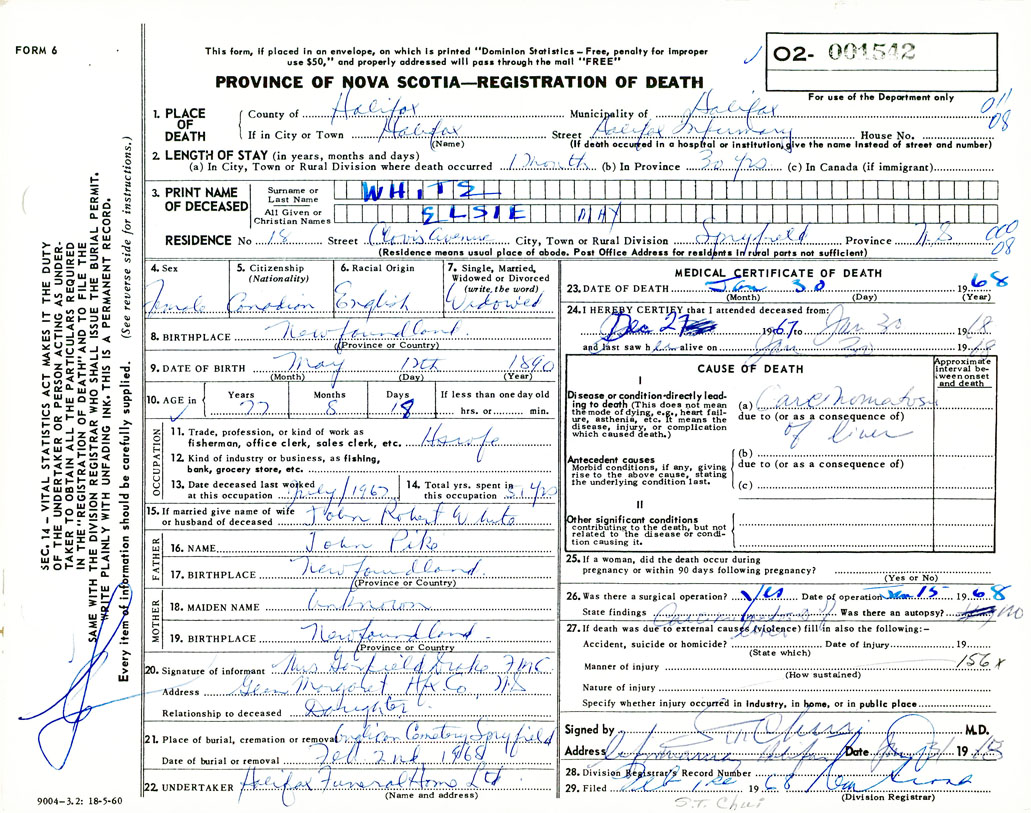 FORM 6
This form, if placed in an envelope, on which is printed "Dominion Statistics – Free, penalty for improper
use $50," and properly addressed will pass through the mail "FREE"
O2- 001542
For use of the Department only
PROVINCE OF NOVA SCOTIA—REGISTRATION OF DEATH
SEC. 14 – VITAL STATISTICS ACT MAKES IT THE DUTY
OF THE UNDERTAKER OR PERSON ACTING AS UNDER-
TAKER TO OBTAIN ALL THE PARTICULARS REQUIRED
IN THE "REGISTRATION OF DEATH" AND TO FILE THE
SAME WITH THE DIVISION REGISTRAR WHO SHALL ISSUE THE BURIAL PERMIT.
WRITE PLAINLY WITH UNFADING INK. THIS IS A PERMANENT RECORD.
Every item of information should be carefully supplied. (See reverse side for instructions.)
1. PLACE OF DEATH
County of Halifax Municipality of Halifax 011 08
If in City or Town Halifax Street Halifax Infirmary House No.
(Name) (If death occurred in a hospital or institution, give the name instead of street and number)
2. LENGTH OF STAY (in years, months and days)
(a) In City, Town or Rural Division where death occurred 1 Month (b) In Province 30 yrs (c) In Canada (if immigrant)
3. PRINT NAME OF DECEASED
Surname or Last Name WHITE
All Given or Christian Names ELSIE MAY
RESIDENCE No 18 Street Clovis Avenue City, Town or Rural Division Spryfield Province N.S 000 08
(Residence means usual place of abode. Post Office Address for residents in rural parts not sufficient)
4. Sex Female
5. Citizenship (Nationality) Canadian
6. Racial Origin English
7. Single, Married, Widowed or Divorced (write the word) Widowed
8. BIRTHPLACE Newfoundland.
(Province or Country)
9. DATE OF BIRTH May 12th 1890
(Month) (Day) (Year)
10. AGE in Years 77 Months 8 Days 18 If less than one day old
hrs. or min.
OCCUPATION
11. Trade, profession, or kind of work as
fisherman, office clerk, sales clerk, etc. Hswfe
12. Kind of industry or business, as fishing,
bank, grocery store, etc.
13. Date deceased last worked
at this occupation July/1967
14. Total yrs. spent in
this occupation 51 yrs
15. If married give name of wife
or husband of deceased John Robert White
FATHER
16. NAME John Pike
17. BIRTHPLACE Newfoundland.
(Province or Country)
MOTHER
18. MAIDEN NAME Unknown
19. BIRTHPLACE Newfoundland.
(Province or Country)
20. Signature of informant Mrs Garfield Drake
Address Glen Margaret Hfx. Co, N.S
Relationship to deceased Daughter.
21. Place of burial, cremation or removal Anglican Cemetery Spryfield
Date of burial or removal Feb 2nd 1968
22. UNDERTAKER Halifax Funeral Home Ltd
(Name and address)
9004–3.2: 18-5-60
MEDICAL CERTIFICATE OF DEATH
23. DATE OF DEATH Jan 30 1968
(Month) (Day) (Year)
24. I HEREBY CERTIFY that I attended deceased from:
Dec 27 1967 to Jan 30 1968
and last saw her alive on Jan 30 1968
CAUSE OF DEATH
Approximate interval between onset and death
I
Disease or condition directly lead-
ing to death (This does not mean
the mode of dying, e.g., heart fail-
ure, asthenia, etc. It means the
disease, injury, or complication
which caused death.)
(a) Carcinomatosis
due to (or as a consequence of)
of liver
Antecedent causes
Morbid conditions, if any, giving
rise to the above cause, stating
the underlying condition last.
(b)
due to (or as a consequence of)
(c)
II
Other significant conditions
contributing to the death, but not
related to the disease or condi-
tion causing it.
25. If a woman, did the death occur during
pregnancy or within 90 days following pregnancy?
(Yes or No)
26. Was there a surgical operation? Yes Date of operation Jan 15 1968
State findings Carcinomatosis of liver Was there an autopsy? NO
27. If death was due to external causes (violence) fill in also the following:–
Accident, suicide or homicide? Date of injury 19
(State which)
Manner of injury 156x
(How sustained)
Nature of injury
Specify whether injury occurred in Industry, in home, or in public place
Signed by S T Chui M.D.
Address Infirmary Halifax Date Jan 31 1968
28. Division Registrar's Record Number
29. Filed Feb 1968
(Division Registrar)
S.T. Chui